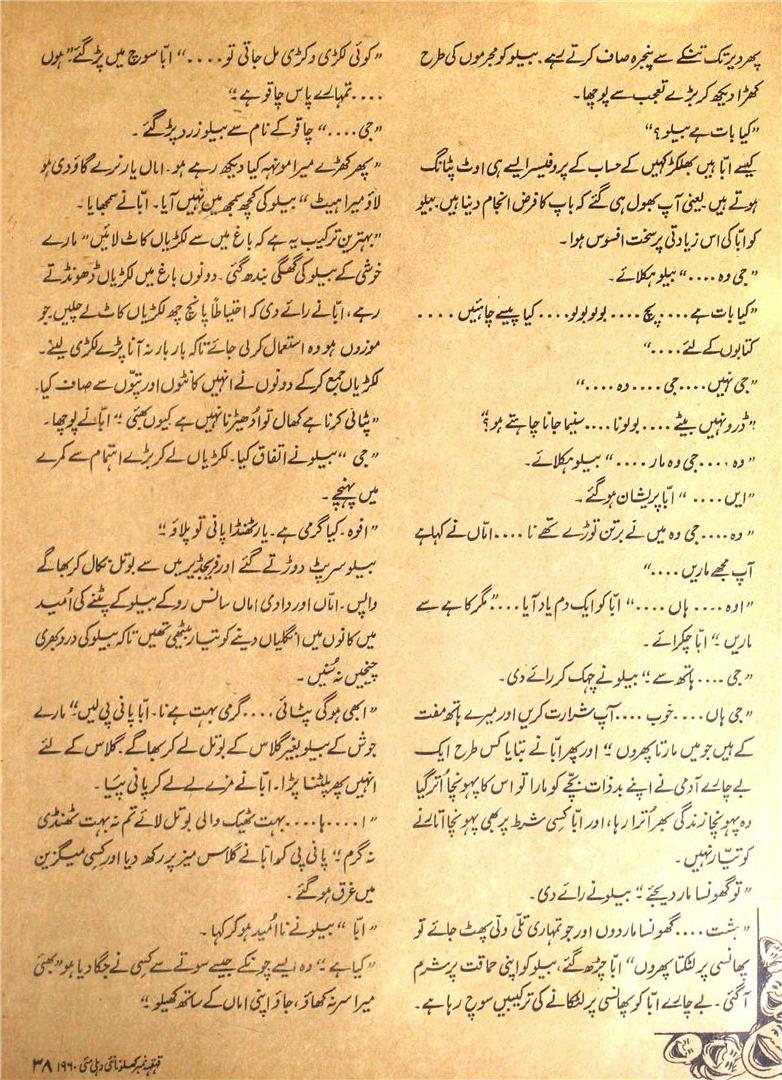 پھر دیر تک تنکے سے پنجرہ صاف کرتے رہے۔ ببیلو کو مجرموں کی طرح
کھڑا دیکھ کر بڑے تعجب سے پوچھا۔
"کیا بات ہے ببیلو؟"
کیسے ابّا ہیں بھلکڑ کہیں کے حساب کے پروفیسر ایسے ہی اوٹ پٹانگ
ہوتے ہیں۔ یعنی آپ بھول ہی گئے کہ باپ کا فرض انجام دینا ہیں۔ ببیلو
کو ابّا کی اس زیادتی پر سخت افسوس ہوا۔
"جی وہ...." ببیلو ہکلائے۔
"کیا بات ہے.... پچ.... بولو بولو.... کیا پیسے چاہئیں....
کتابوں کے لئے...."
"جی نہیں.... جی.... وہ...."
"ڈرو نہیں بیٹے.... بولو نا.... سنیما جانا چاہتے ہو؟"
"وہ.... جی وہ مار...." ببیلو ہکلائے۔
"ایں...." ابّا پریشان ہو گئے۔
"وہ.... جی وہ میں نے برتن توڑے تھے نا.... امّاں نے کہا ہے
آپ مجھے ماریں...."
"اوہ.... ہاں...." ابّا کو ایک دم یاد آیا...." مگر کاہے سے
ماریں۔" ابّا چکرائے۔
"جی.... ہاتھ سے۔" ببیلو نے چہک کر رائے دی۔
"جی ہاں.... خوب.... آپ شرارت کریں اور میرے ہاتھ مفت
کے ہیں جو میں مارتا پھروں۔" اور پھر ابّا نے بتایا کس طرح ایک
بے چارے آدمی نے اپنے بدذات بچّے کو مارا تو اس کا پہونچا اُتر گیا
وہ پہونچا زندگی بھر اُترا رہا، اور ابّا کسی شرط پر بھی پہونچا اتارنے
کو تیّار نہیں۔
"تو گھونسا مار دیجئے۔" ببیلو نے رائے دی۔
"ہشت.... گھونسا مار دوں اور جو تمہاری تلّی دلّی پھٹ جائے تو
پھانسی پر لٹکتا پھروں" ابّا چڑھ گئے، ببیلو کو اپنی حماقت پر شرم
آگئی۔ بے چارے ابّا کو پھانسی پر لٹکانے کی ترکیبیں سوچ رہا ہے۔
"کوئی لکڑی وکڑی مل جاتی تو...." ابّا سوچ میں پڑ گئے۔ "ہوں
.... تمہارے پاس چاقو ہے۔"
"جی...." چاقو کے نام سے ببیلو زرد پڑ گئے۔
"پھر کھڑے میرا مونہہ کیا دیکھ رہے ہو۔ اماں یار نرے گاؤدی ہو
لاؤ میرا ہیٹ" ببیلو کی کچھ سمجھ میں نہیں آیا۔ ابّا نے سمجھایا۔
"بہترین ترکیب یہ ہے کہ باغ میں سے لکڑیاں کاٹ لائیں" مارے
خوشی کے ببیلو کی گھگی بندھ گئی۔ دونوں باغ میں لکڑیاں ڈھونڈتے
رہے، ابّا نے رائے دی کہ احتیاطاً پانچ چھ لکڑیاں کاٹ لے چلیں۔ جو
موزوں ہو وہ استعمال کر لی جائے تاکہ بار بار نہ آنا پڑے لکڑی لینے۔
لکڑیاں جمع کر کے دونوں نے انہیں کانٹوں اور پتّوں سے صاف کیا۔
"پٹائی کرنا ہے کھال تو اُدھیڑنا نہیں ہے کیوں بھئی۔" ابّا نے پوچھا۔
"جی" ببیلو نے اتفاق کیا۔ لکڑیاں لے کر بڑے اہتمام سے کمرے
میں پہنچے۔
"افوہ۔ کیا گرمی ہے۔ یار ٹھنڈا پانی تو پلاؤ۔"
ببیلو سرپٹ دوڑتے گئے اور فریجڈیر میں سے بوتل نکال کر بھاگے
واپس۔ امّاں اور دادی اماں سانس روکے ببیلو کے پٹنے کی اُمید
میں کانوں میں انگلیاں دینے کو تیار بیٹھی تھیں تاکہ ببیلو کی درد بھری
چیخیں نہ سُنیں۔
"ابھی ہو گی پٹائی.... گرمی بہت ہے نا۔ ابّا پانی پی لیں۔" مارے
جوش کے ببیلو بغیر گلاس کے بوتل لے کر بھاگے۔ گلاس کے لئے
انہیں پھر پلٹنا پڑا۔ ابّا نے مزے لے لے کر پانی پیا۔
"ا.... ہا.... بہت ٹھیک والی بوتل لائے تم نہ بہت ٹھنڈی
نہ گرم۔" پانی پی کر ابّا نے گلاس میز پر رکھ دیا اور کسی میگزین
میں غرق ہو گئے۔
"ابّا" ببیلو نے نا اُمید ہو کر کہا۔
"کیا ہے۔" وہ ایسے چونکے جیسے سوتے سے کسی نے جگا دیا ہو "بھئی
میرا سر نہ کھاؤ، جاؤ اپنی اماں کے ساتھ کھیلو۔"
قہقہہ نمبر کھلونا نئی دہلی مئی ۱۹۶۰ ۳۸